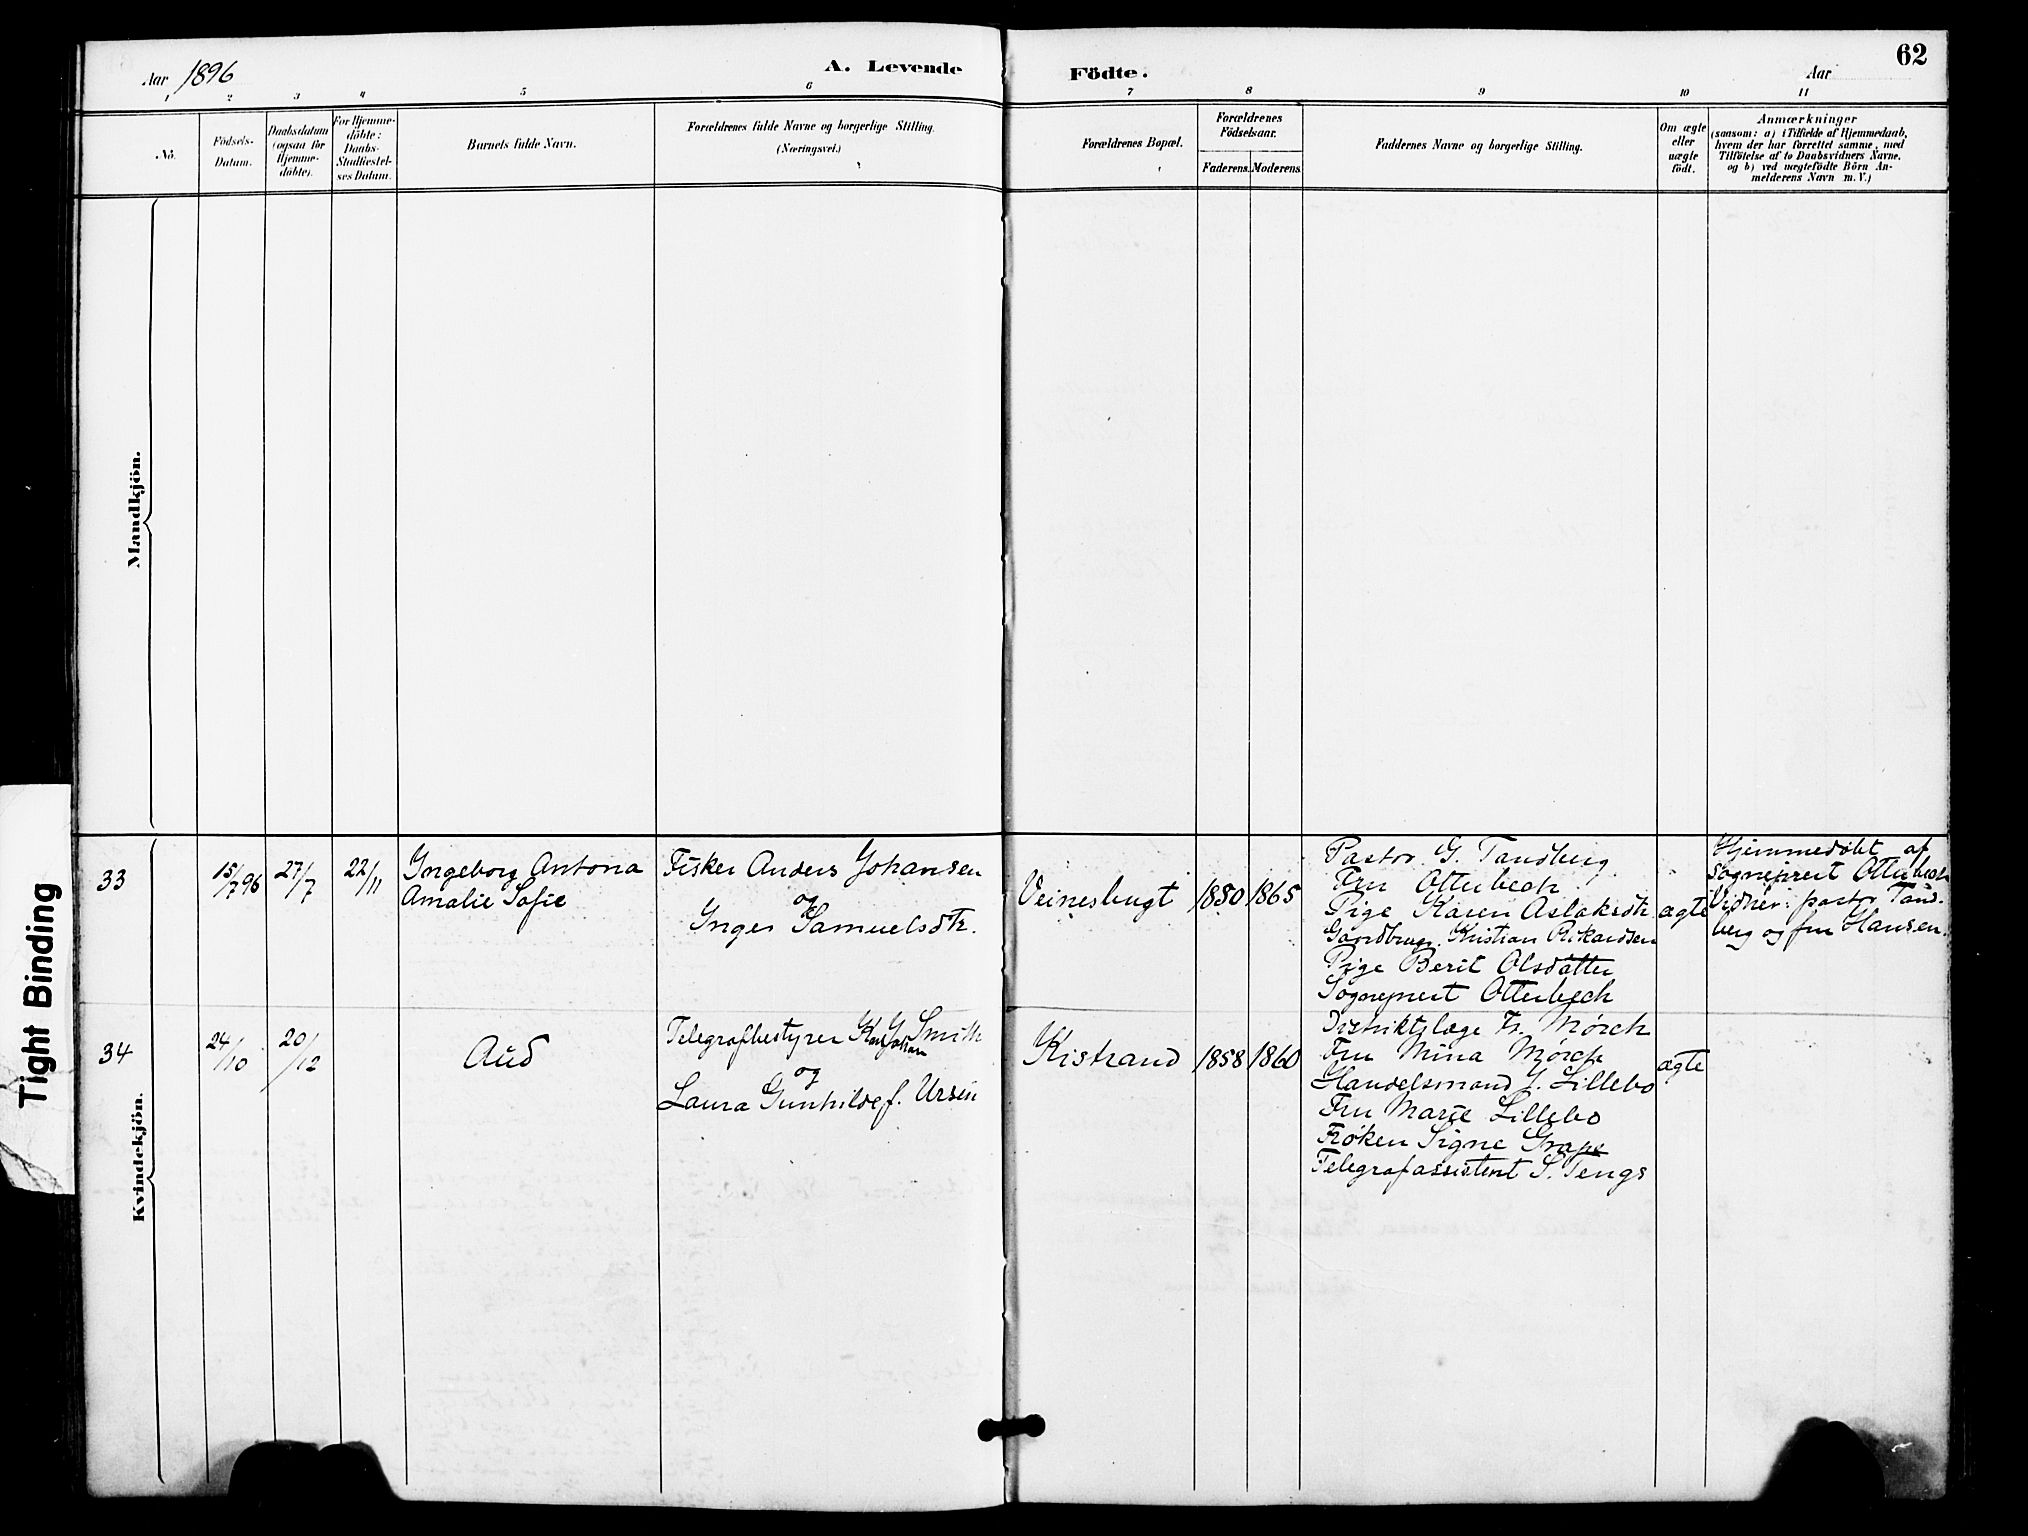 62
Aar 1896
A. Levende Födte.
Aar
1 2 3 4 5 6 7 8 9 10 11
No.
Födsels-
Datum.
Daabsdatum
(ogsaa for
Hjemme-
döbte).
For Hjemme-
döbte:
Daabs-
Stadfæstel-
ses Datum.
Barnets fulde Navn.
Forældrenes fulde Navne og borgerlige Stilling.
(Næringsvei.)
Forældrenes Bopæl.
Forældrenes
Födselsaar.
Faderens. Moderens.
Faddernes Navne og borgerlige Stilling.
Om ægte
eller
uægte
födt.
Anmærkninger
(saasom: a) i Tilfælde af Hjemmedaab,
hvem der har forrettet samme, med
Tilföielse af to Daabsvidners Navne,
og b) ved uægtefödte Börn An-
melderens Navn m. V.)
Mandkjön.
Kvindekjön.
33
15/7 96
27/7
22/11
Ingeborg Antona
Amalie Sofie
Fisker Anders Johansen
og
Inger Samuelsdtr.
Veinesbugt
1850 1865
Pastor G. Tandberg
Fru Otterbech
Pige Karen Aslaksdtr.
Gaardbrug. Kristian Rikardsen
Pige Berit Olsdatter
Sogneprest Otterbech
ægte
Hjemmedöbt af
sogneprest Otterbech
Vidner: pastor Tand-
berg og fru Hansen.
34
24/10
20/12
Aud
Telegrafbestyrer Karl Johan Smith
og
Laura Gunhilde f. Ursin
Kistrand
1858 1860
Distriktslæge Fr. Mørch
Fru Mina Mørch
Handelsmand J. Lillebo
Fru Marie Lillebo
Frøken Signe Grape
Telegrafassistent S. Tengs
ægte
Tight Binding